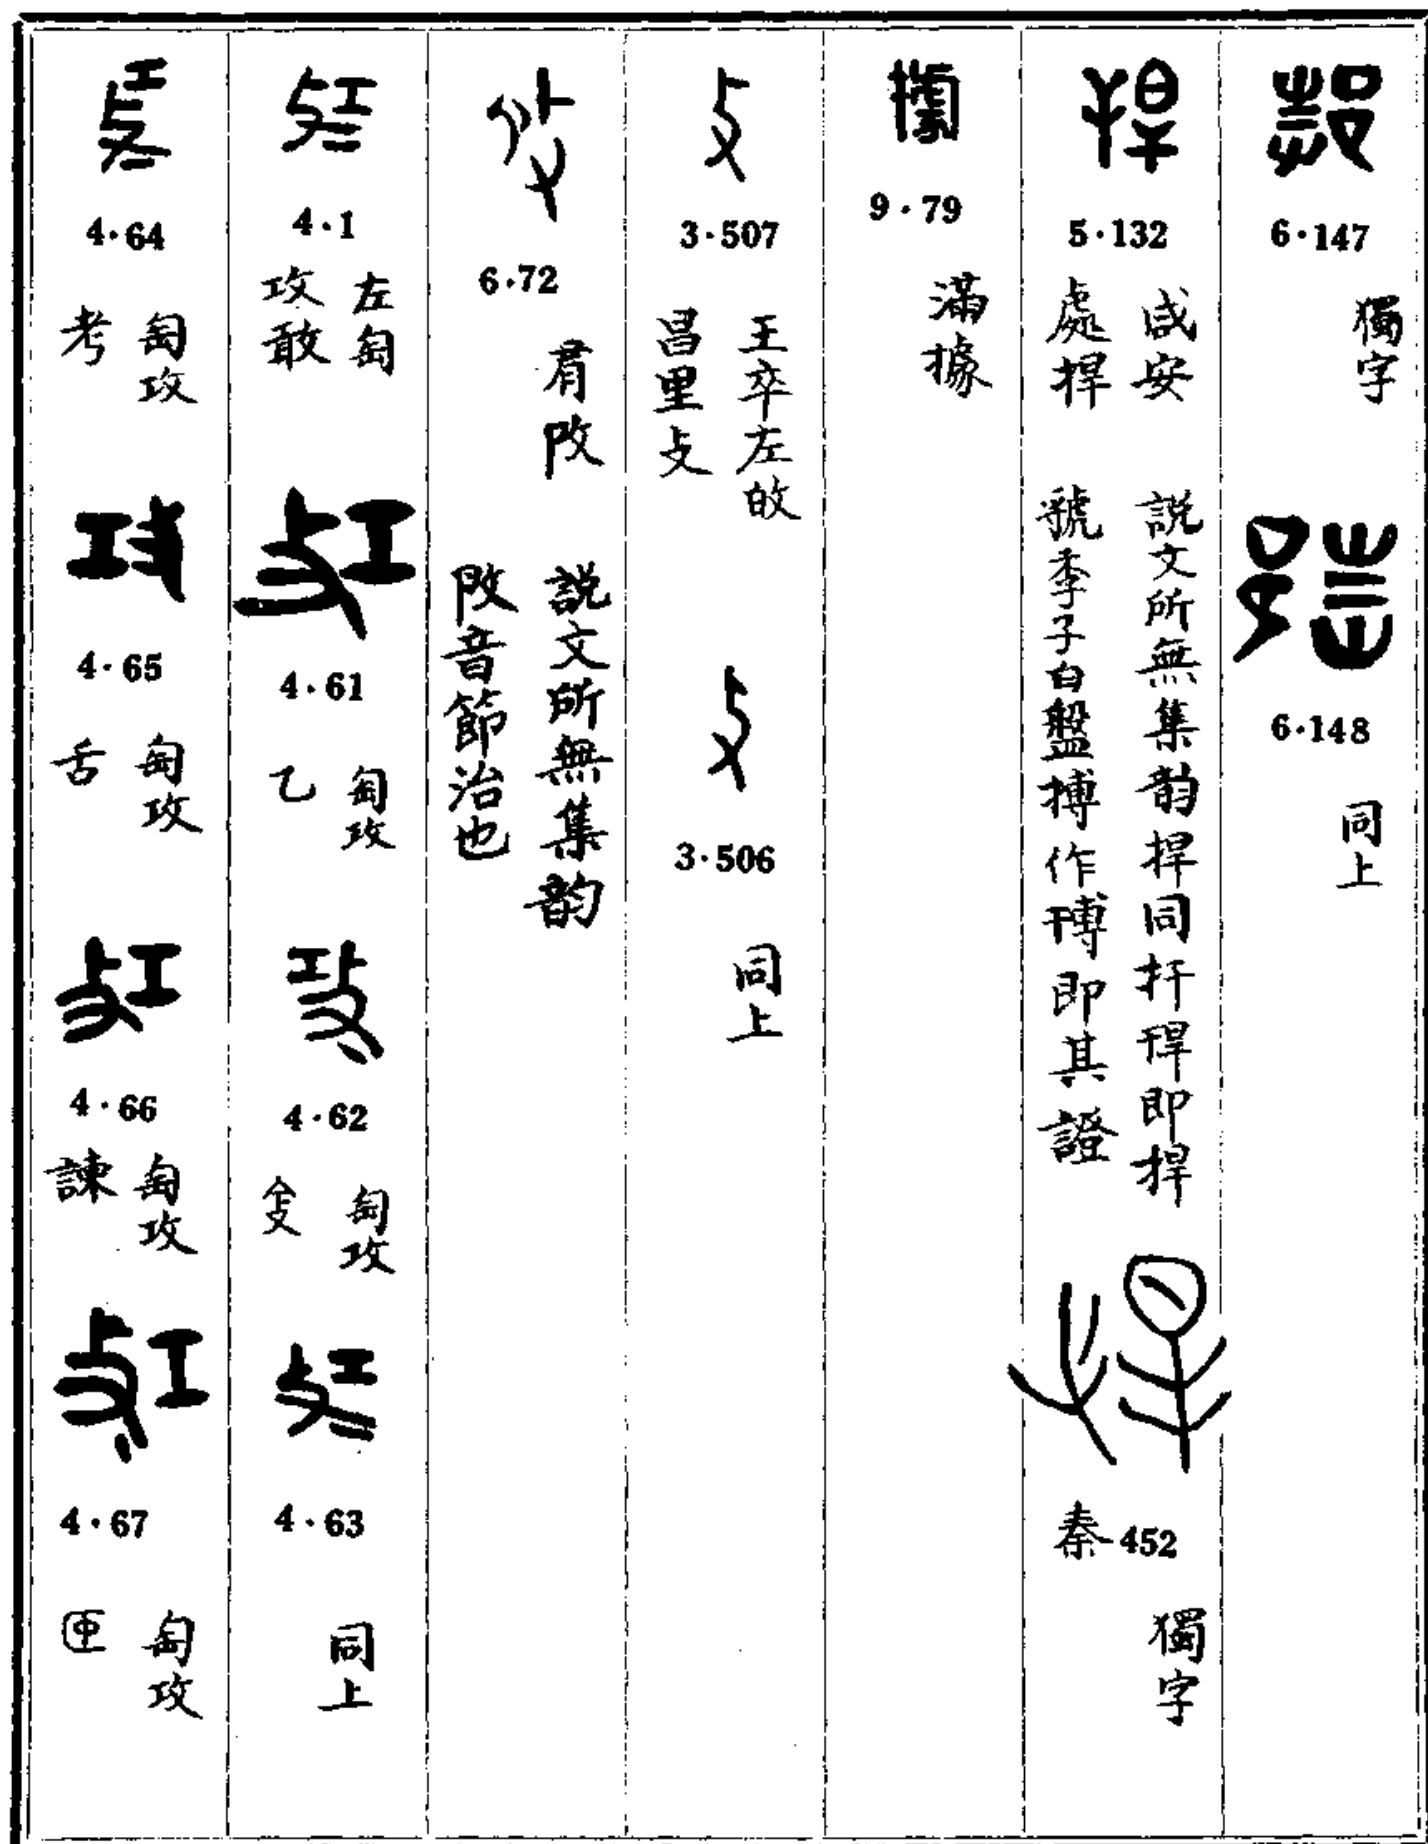 6·147
獨字
6·148
同上
5·132
咸安
處捍
説文所無集韵捍同扞捍即捍
虢季子白盤搏作博即其證
秦452
獨字
9·79
滿據
3·507
王卒左
昌里攴
3·506
同上
6·72
説文所無集韵
音節治也
4·1
左匋
攻敢
4·61
匋攻
乙
4·62
匋攻
4·63
同上
4·64
匋攻
考
4·65
匋攻
舌
4·66
匋攻
諫
4·67
匋攻